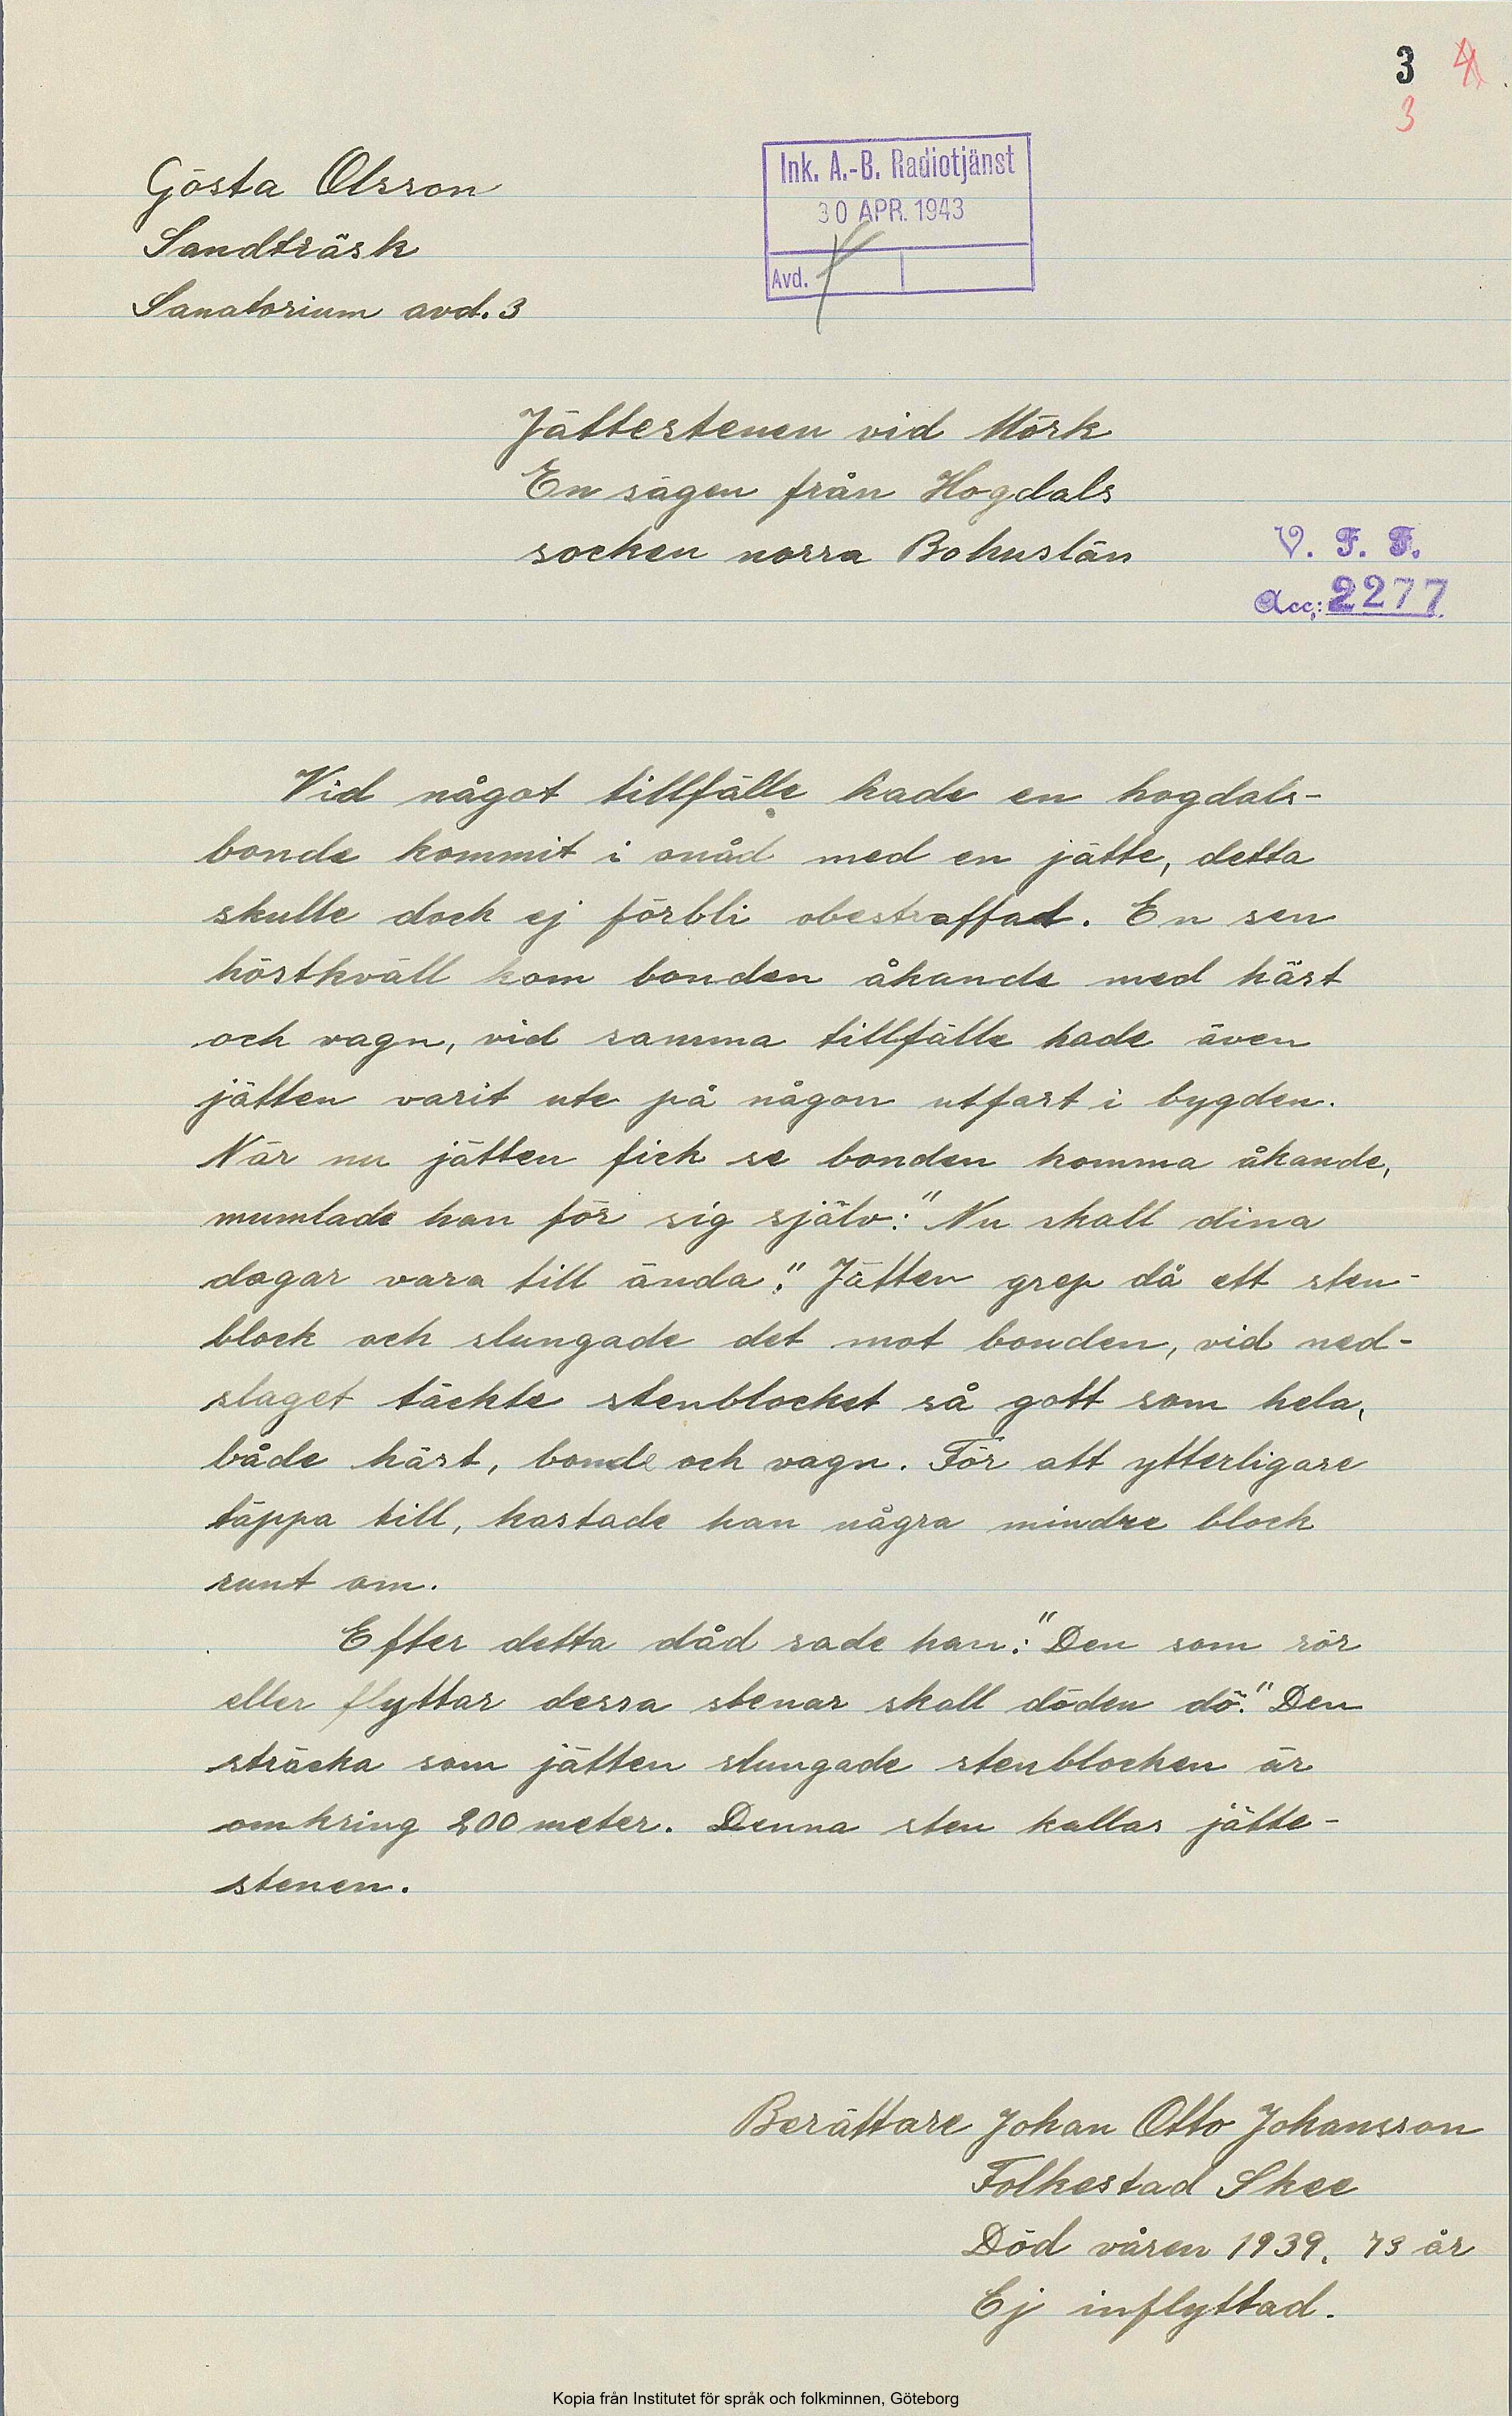 3 4
3
Gösta Olsson
Sandträsk
Sanatorium avd. 3
Ink. A.-B. Radiotjänst
30 APR. 1943
Avd.
Jättestenen vid Mörk
En sägen från Hogdals
socken norra Bohuslän
V. F. F.
Acc: 2277
Vid något tillfälle hade en hogdals-
bonde kommit i onåd med en jätte, detta
skulle dock ej förbli obestraffat. En sen
höstkväll kom bonden åkande med häst
och vagn, vid samma tillfälle hade även
jätten varit ute på någon utfart i bygden.
När nu jätten fick se bonden komma åkande,
mumlade han för sig själv: "Nu skall dina
dagar vara till ända." Jätten grep då ett sten-
block och slungade det mot bonden, vid ned-
slaget täckte stenblocket så gott som hela,
både häst, bonde och vagn. För att ytterligare
täppa till, kastade han några mindre block
runt om.
Efter detta dåd sade han: "Den som rör
eller flyttar dessa stenar skall döden dö." Den
sträcka som jätten slungade stenblocken är
omkring 200 meter. Denna sten kallas jätte-
stenen.
Berättare Johan Otto Johansson
Folkestad Skee
Död våren 1939. 73 år
Ej inflyttad.
Kopia från Institutet för språk och folkminnen, Göteborg